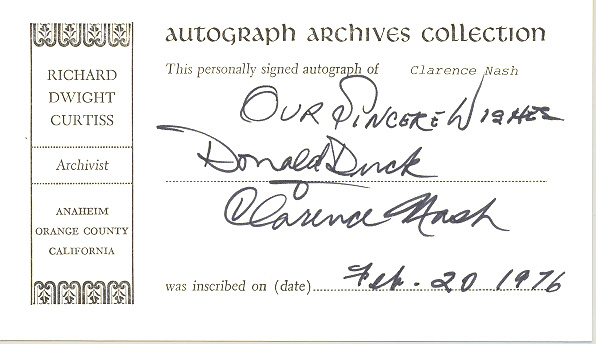 RICHARD
DWIGHT
CURTISS
Archivist
ANAHEIM
ORANGE COUNTY
CALIFORNIA
autograph archives collection
This personally signed autograph of Clarence Nash
Our Sincere Wishes
Donald Duck
Clarence Nash
was inscribed on (date) Feb. 20 1976